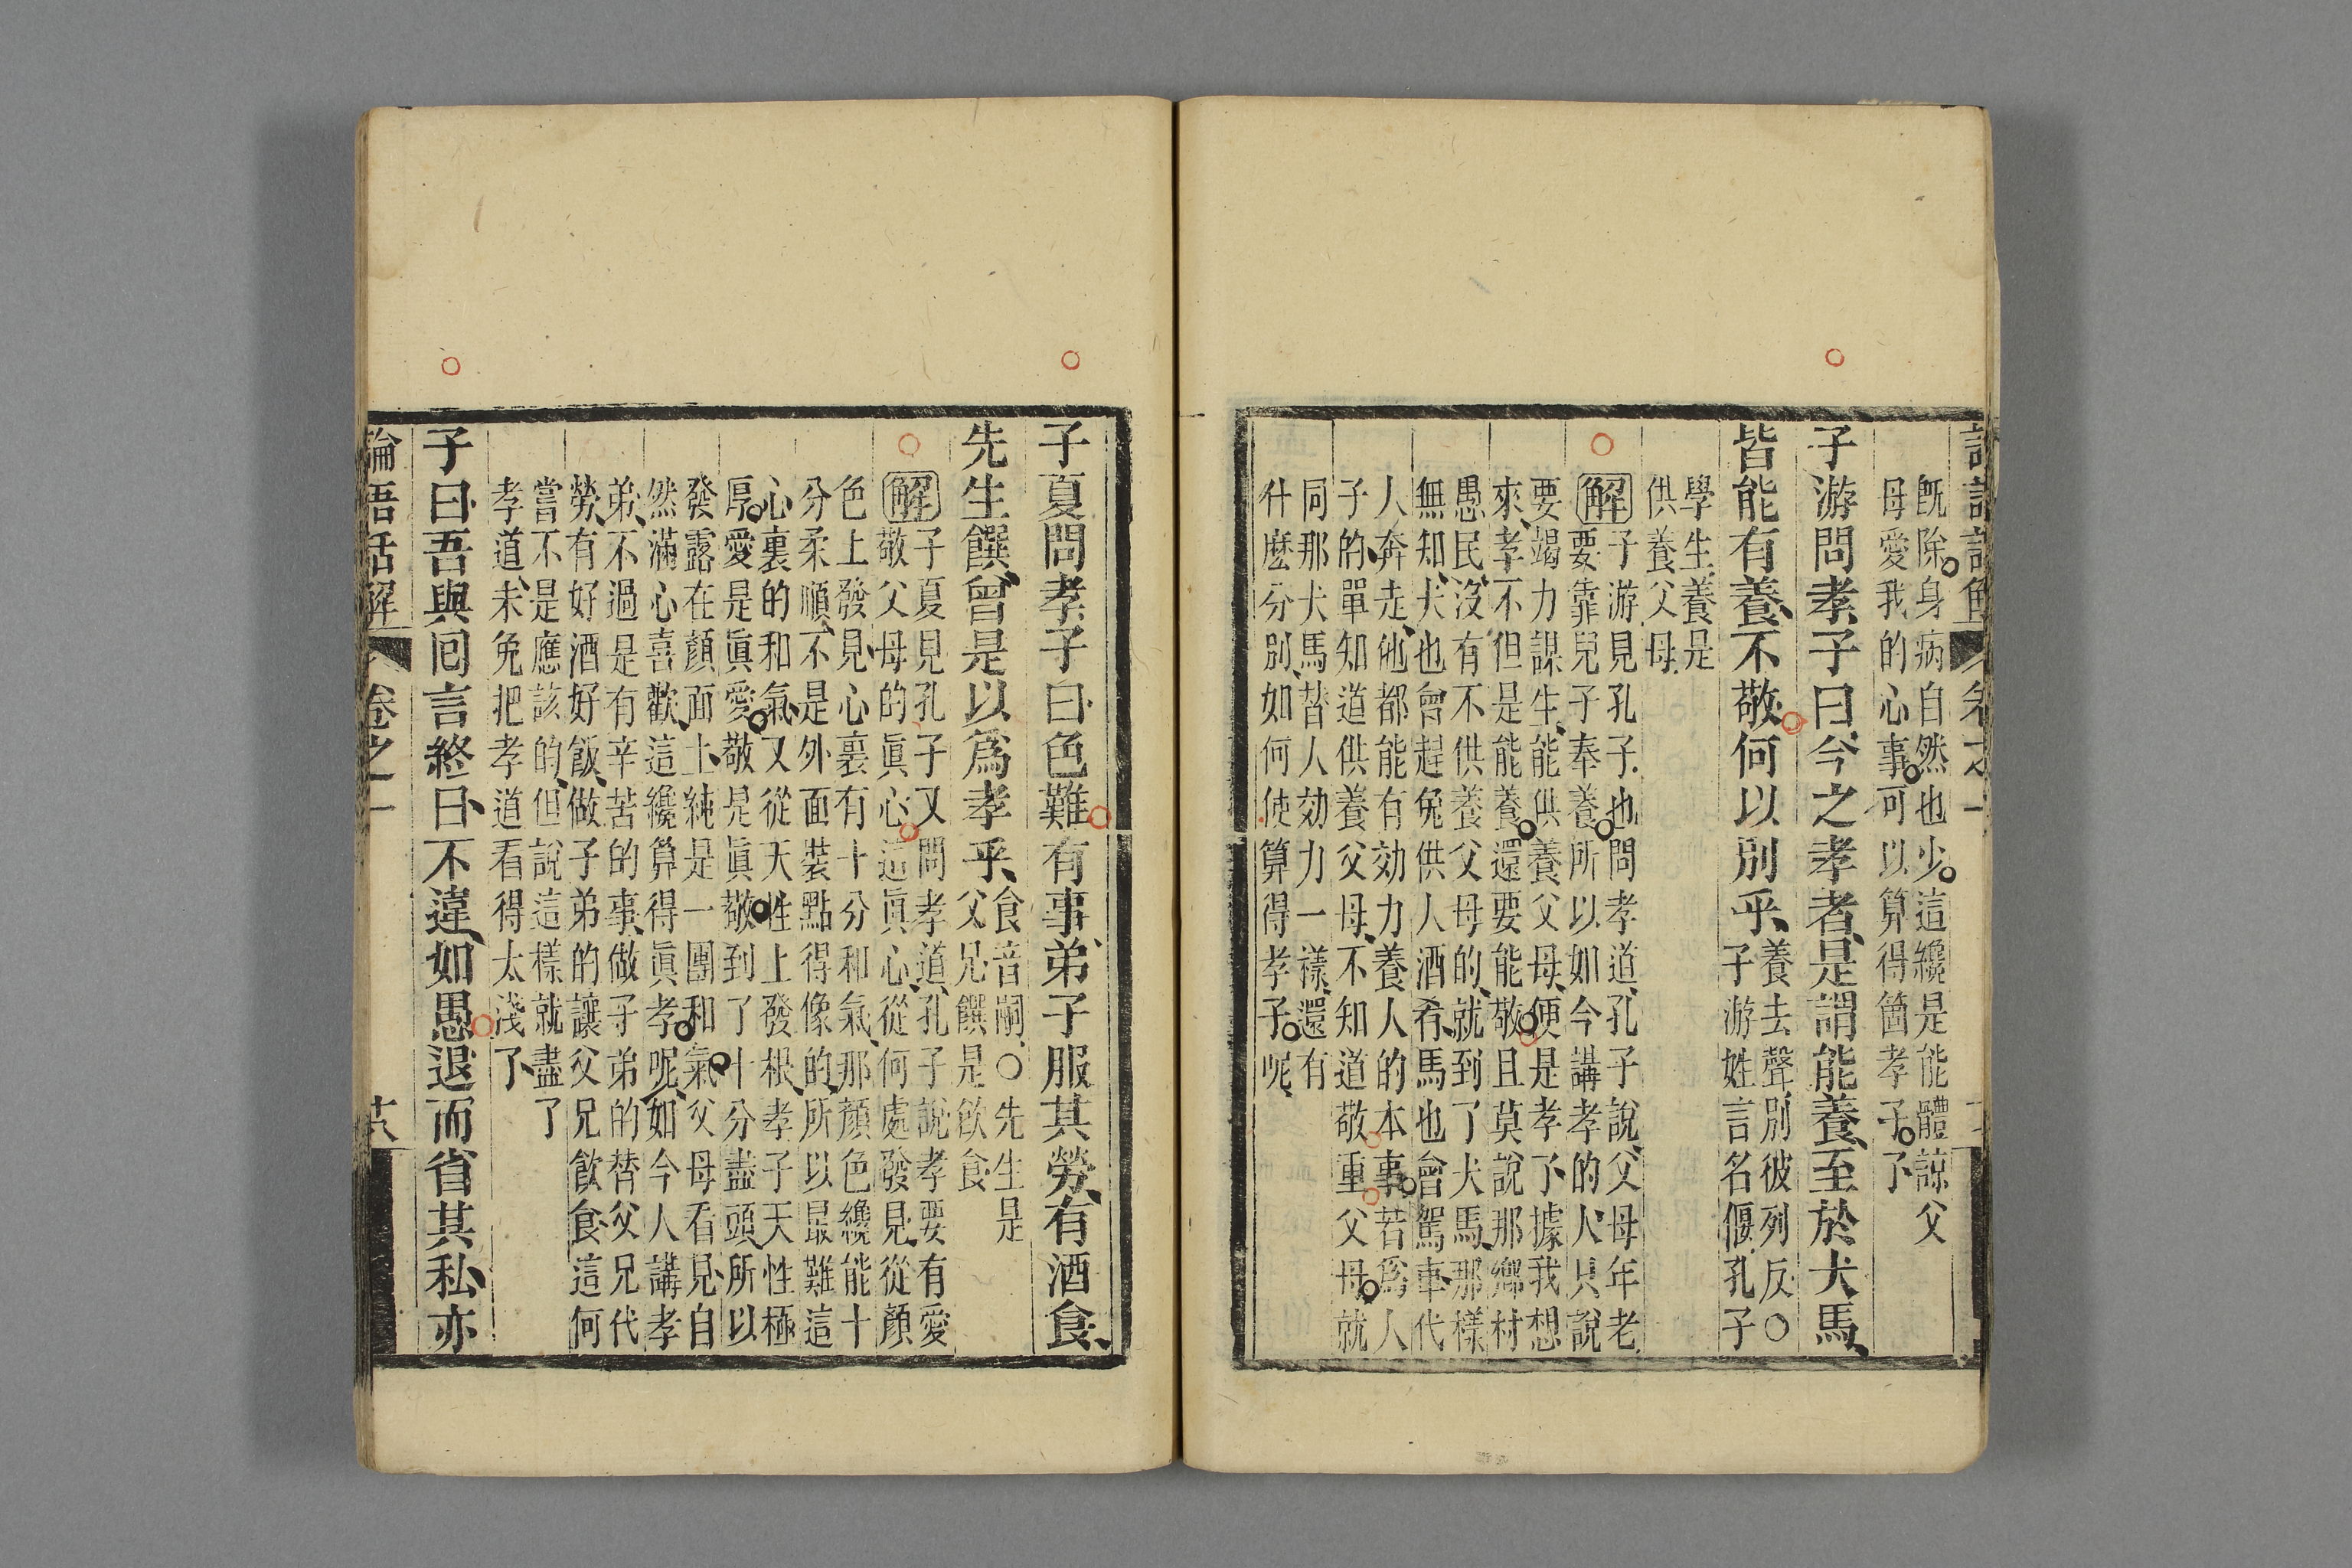 旣除身病自然也少這纔是能體諒父
母愛我的心事可以算得箇孝子了
子游問孝子曰今之孝者是謂能養至於犬馬
皆能有養不敬何以別乎
養去聲別彼列反〇
子游姓言名偃孔子
學生養是
供養父母
解
子游見孔子也問孝道孔子說父母年老
要靠兒子奉養所以如今講孝的人只說
要竭力謀生能供養父母便是孝了據我想
來孝不但是能養還要能敬且莫說那鄉村
愚民沒有不供養父母的就到了犬馬那樣
無知犬也曾趕兔供人酒肴馬也曾駕車代
人奔走他都能有効力養人的本事若爲人
子的單知道供養父母不知道敬重父母就
同那犬馬替人効力一樣還有
什麽分別如何使算得孝子呢
子夏問孝子曰色難有事弟子服其勞有酒食
先生饌曾是以爲孝乎
食音嗣〇先生是
父兄饌是飮食
解
子夏見孔子又問孝道孔子說孝要有愛
敬父母的眞心這眞心從何處發見從顏
色上發見心裏有十分和氣那顏色纔能十
分柔順不是外面裝點得像的所以最難這
心裏的和氣又從天性上發根孝子天性極
厚愛是眞愛敬是眞敬到了十分盡頭所以
發露在顏面上純是一團和氣父母看見自
然滿心喜歡這纔算得眞孝呢如今人講孝
弟不過是有辛苦的事做子弟的替父兄代
勞有好酒好飯做子弟的讓父兄飮食這何
嘗不是應該的但說這樣就盡了
孝道未免把孝道看得太淺了
子曰吾與回言終日不違如愚退而省其私亦
論語話解 卷之一 十八